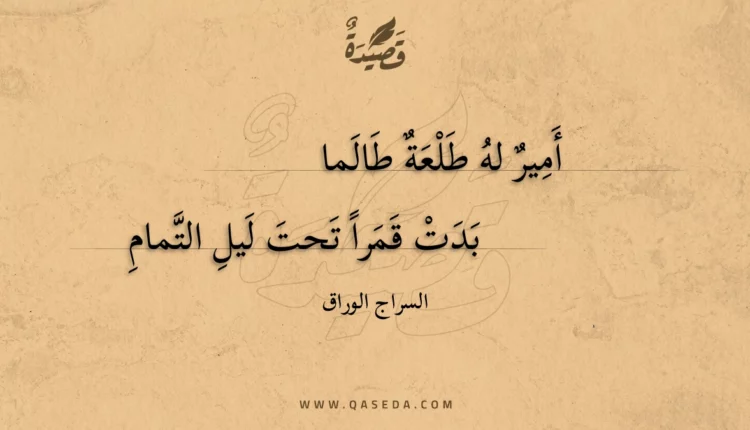 قَصِيْدَةٌ
أَمِيرٌ لهُ طَلْعَةٌ طَالَما
بَدَتْ قَمَراً تَحتَ لَيلِ التَّمامِ
السراج الوراق
WWW.QASEDA.COM